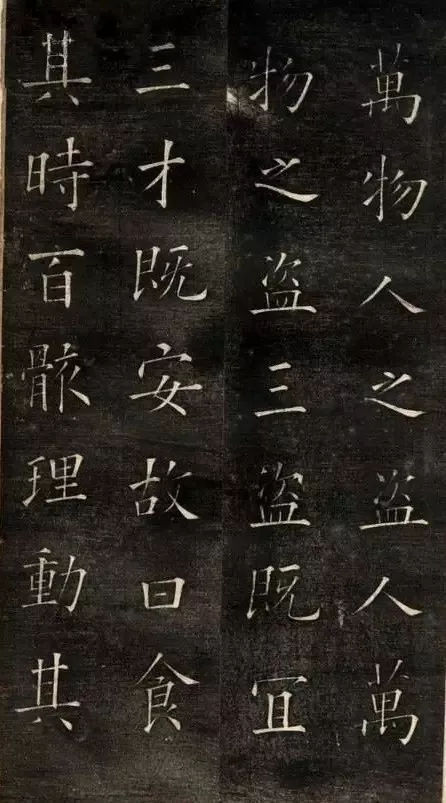 萬物人之盗人萬
物之盗三盗既冝
三才既安故曰食
其時百骸理動其